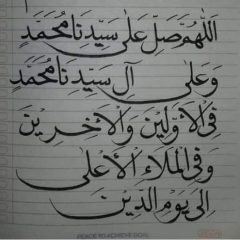 اللهم صل على سيدنا محمد
وعلى آل سيدنا محمد
في الأولين والآخرين
وفي الملاء الأعلى
إلى يوم الدين
PEACE TO ACHIEVE GOAL